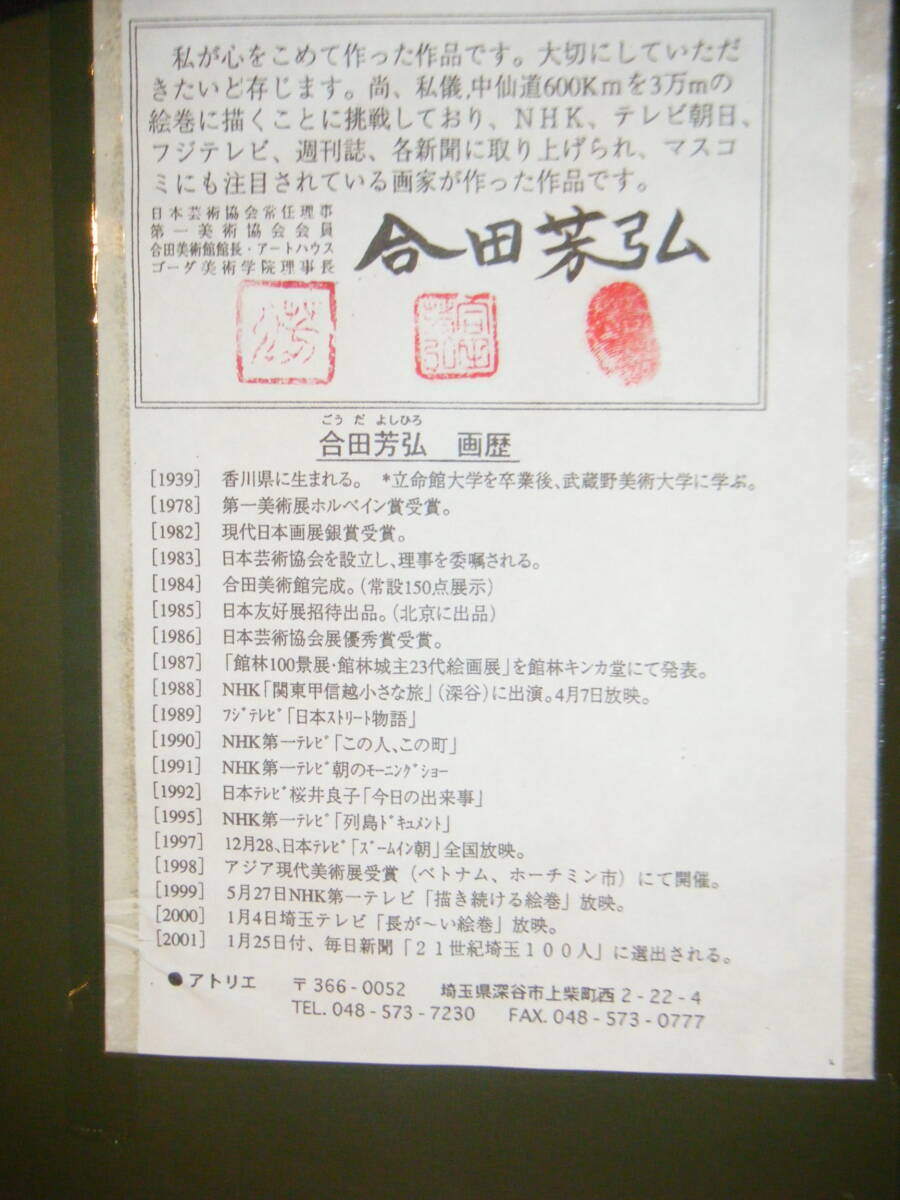 私が心をこめて作った作品です。大切にしていただ
きたいど存じます。尚、私儀,中仙道600Kmを3万mの
絵巻に描くことに挑戦しており、NHK、テレビ朝日、
フジテレビ、週刊誌、各新聞に取り上げられ、マスコ
ミにも注目されている画家が作った作品です。
日本芸術協会常任理事
第一美術協会会員
合田美術館館長・アートハウス
ゴーダ美術学院理事長
合田芳弘
ごうだ よしひろ
合田芳弘 画歴
[1939] 香川県に生まれる。 *立命館大学を卒業後、武蔵野美術大学に学ぶ。
[1978] 第一美術展ホルベイン賞受賞。
[1982] 現代日本画展銀賞受賞。
[1983] 日本芸術協会を設立し、理事を委嘱される。
[1984] 合田美術館完成。(常設150点展示)
[1985] 日本友好展招待出品。(北京に出品)
[1986] 日本芸術協会展優秀賞受賞。
[1987] 「館林100景展・館林城主23代絵画展」を館林キンカ堂にて発表。
[1988] NHK「関東甲信越小さな旅」(深谷)に出演。4月7日放映。
[1989] フジテレビ「日本ストリート物語」
[1990] NHK第一テレビ「この人、この町」
[1991] NHK第一テレビ朝のモーニングショー
[1992] 日本テレビ桜井良子「今日の出来事」
[1995] NHK第一テレビ「列島ドキュメント」
[1997] 12月28、日本テレビ「ズームイン朝」全国放映。
[1998] アジア現代美術展受賞(ベトナム、ホーチミン市)にて開催。
[1999] 5月27日NHK第一テレビ「描き続ける絵巻」放映。
[2000] 1月4日埼玉テレビ「長が～い絵巻」放映。
[2001] 1月25日付、毎日新聞「21世紀埼玉100人」に選出される。
●アトリエ 〒366-0052 埼玉県深谷市上柴町西2-22-4
TEL. 048-573-7230 FAX. 048-573-0777